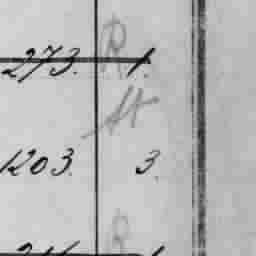 273. R 1.
St
1203. 3.
R